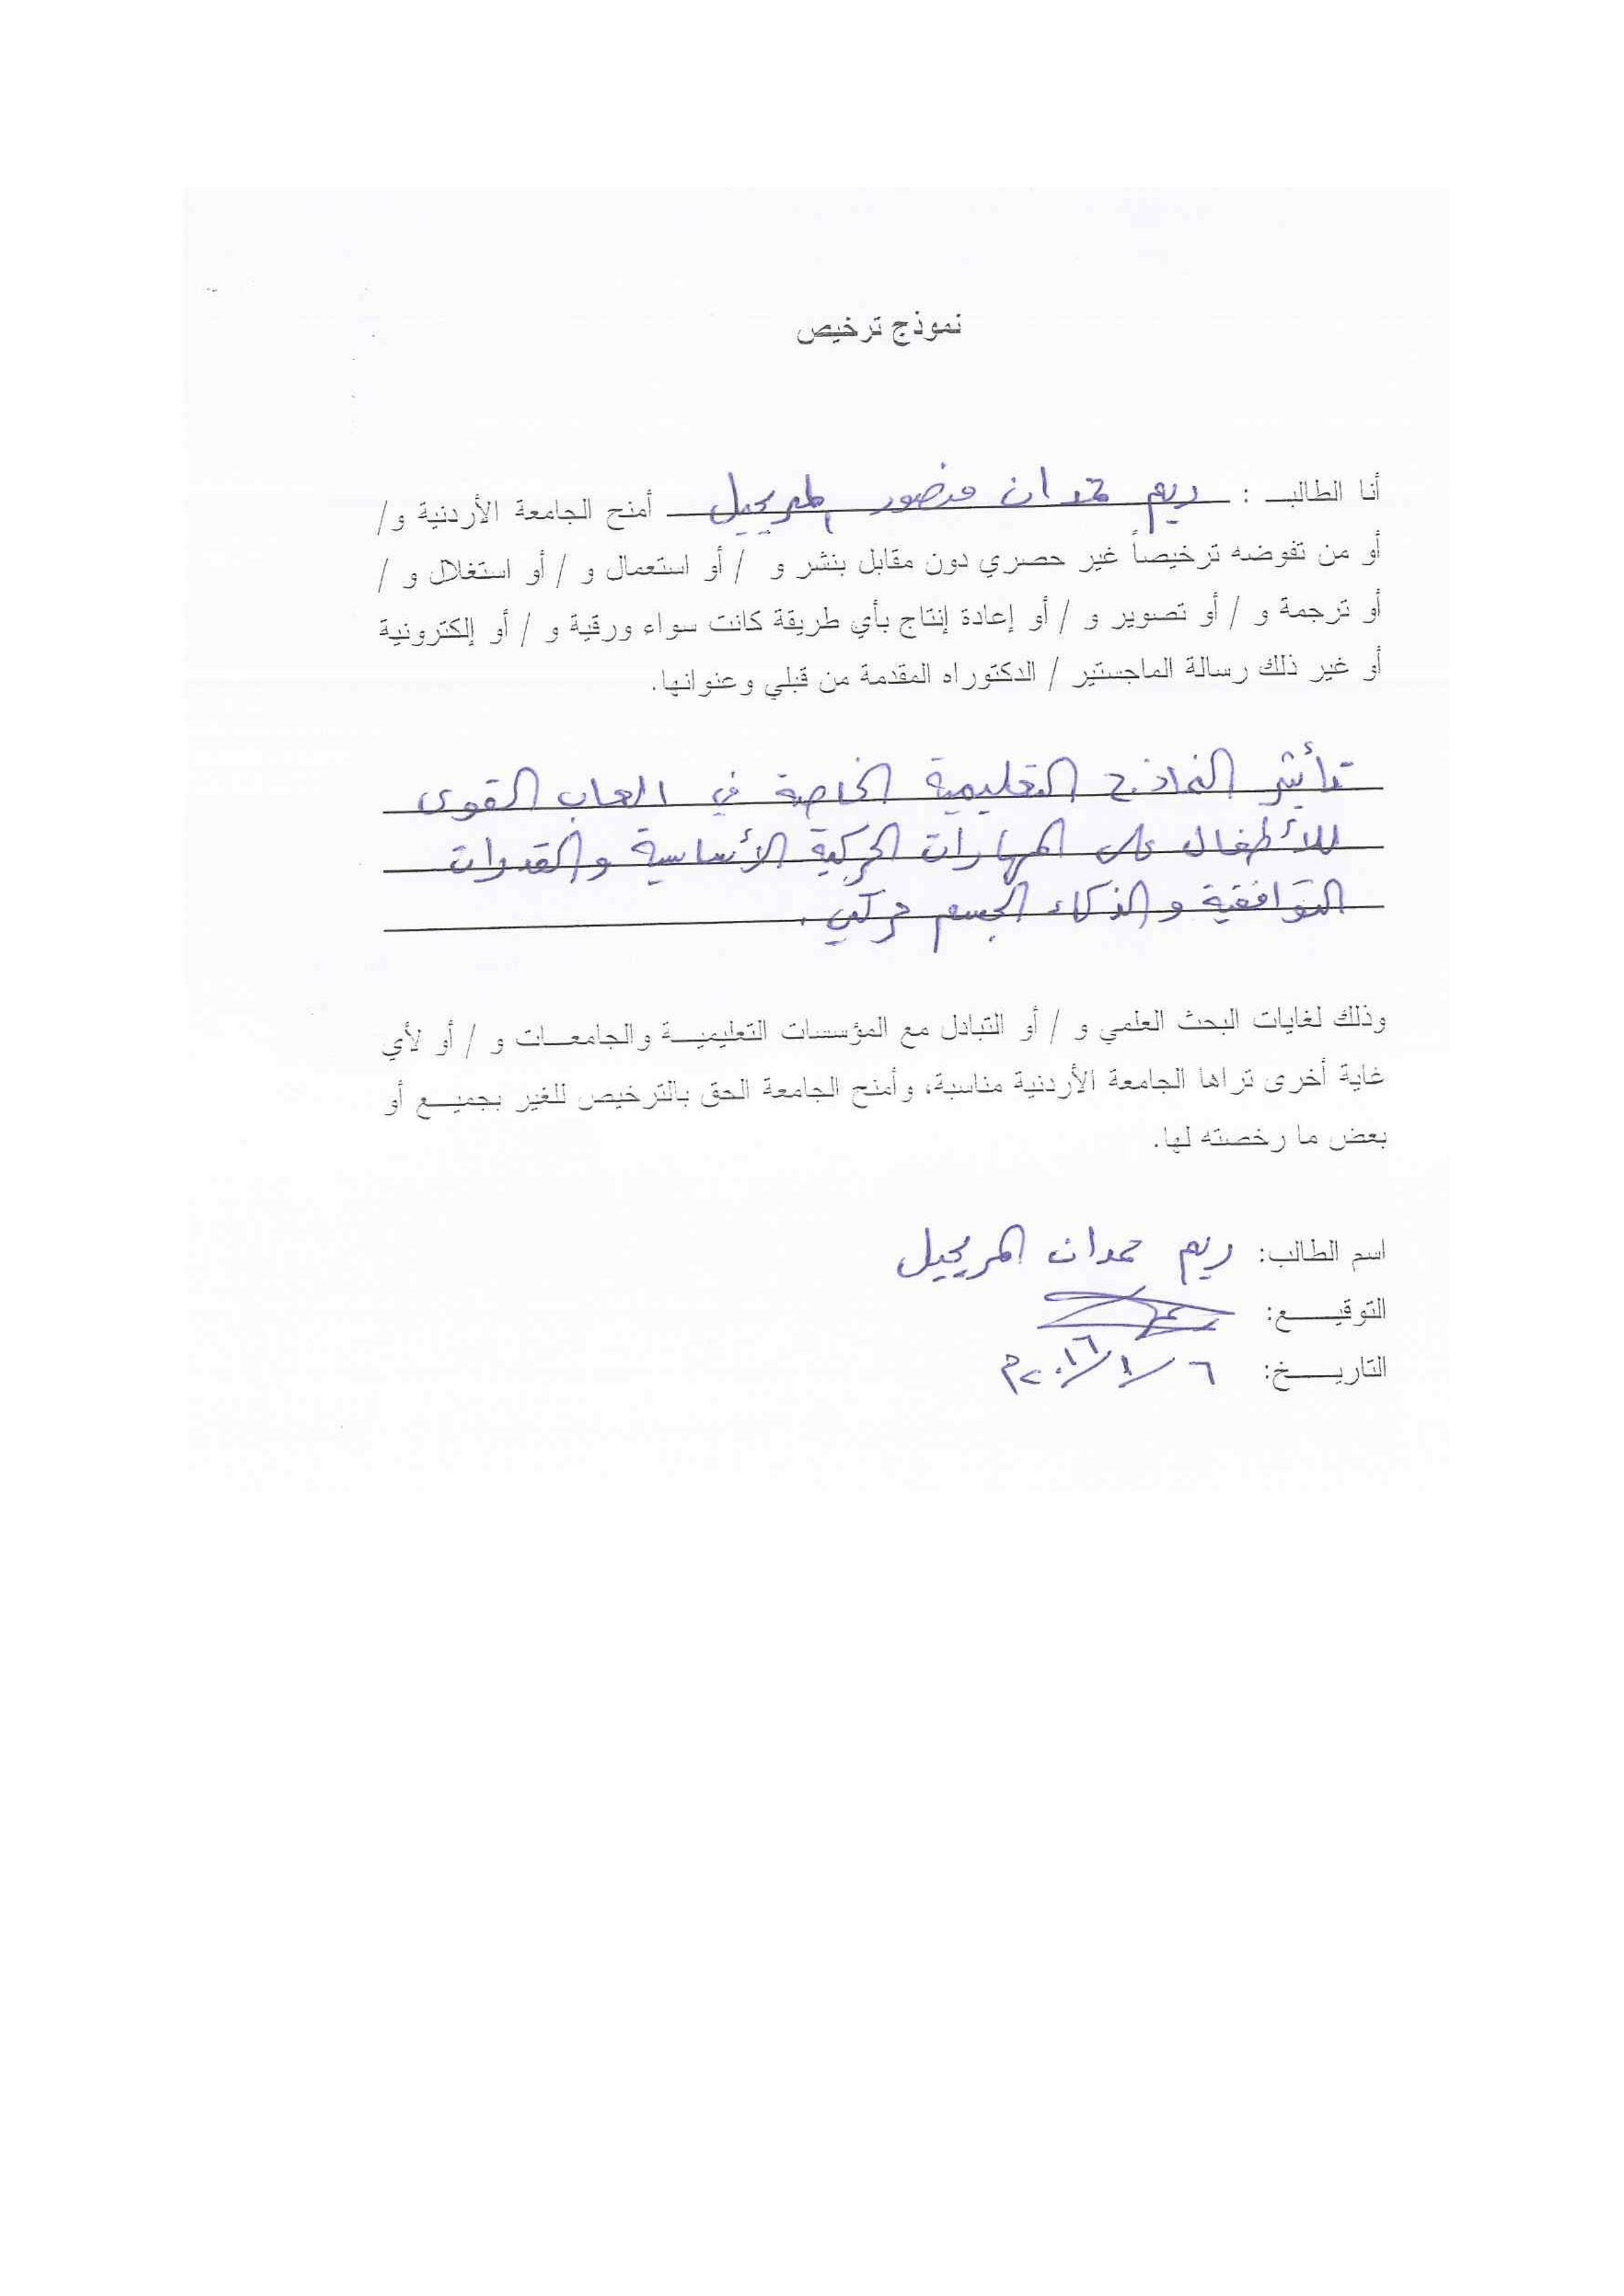 نموذج ترخيص
أنا الطالب : ريم حمدان منصور المريحيل أمنح الجامعة الأردنية و/
أو من تفوضه ترخيصاً غير حصري دون مقابل بنشر و / أو استعمال و / أو استغلال و /
أو ترجمة و / أو تصوير و / أو إعادة إنتاج بأي طريقة كانت سواء ورقية و / أو إلكترونية
أو غير ذلك رسالة الماجستير / الدكتوراه المقدمة من قبلي وعنوانها.
تأثير النماذج التعليمية الخاصة في العاب القوى
للأطفال على المهارات الحركية الأساسية والقدرات
التوافقية والذكاء الجسم حركي .
وذلك لغايات البحث العلمي و / أو التبادل مع المؤسسات التعليمية والجامعات و / أو لأي
غاية أخرى تراها الجامعة الأردنية مناسبة، وأمنح الجامعة الحق بالترخيص للغير بجميع أو
بعض ما رخصته لها.
اسم الطالب: ريم حمدان المريحيل
التوقيع:
التاريخ: ٦ / ١ / ٢٠١٦م